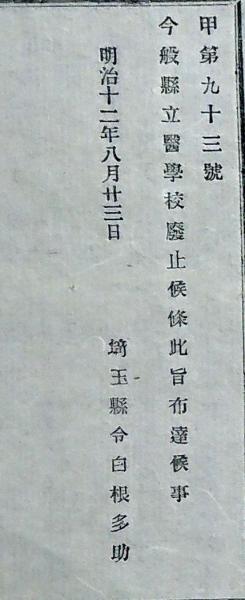 甲第九十三號
今般縣立醫學校廢止候條此旨布達候事
明治十二年八月廿三日
埼玉縣令白根多助